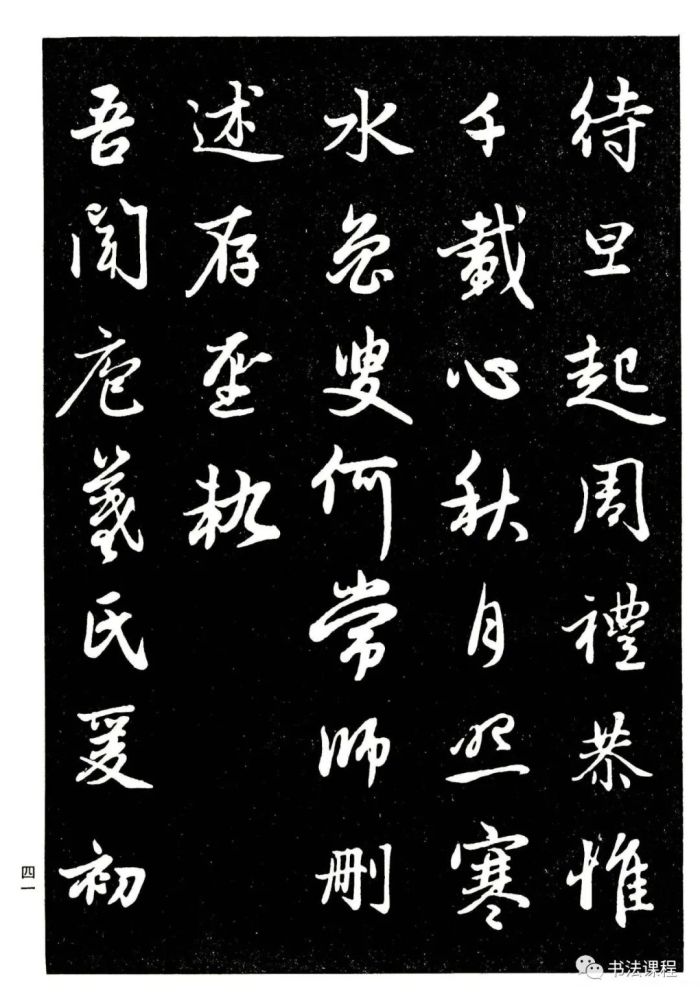 待旦起周禮恭惟
千載心秋月照寒
水魯叟何常師刪
述存聖軌
吾聞庖羲氏爰初
四一
书法课程